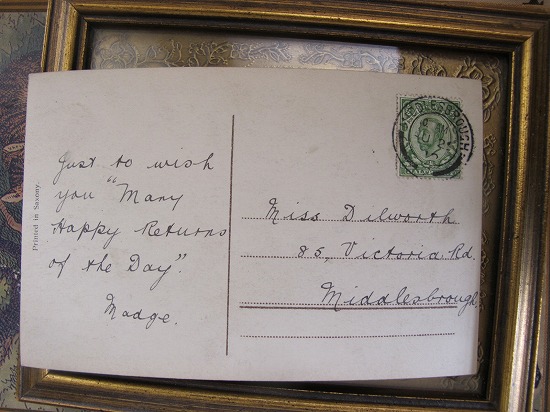 Printed in Saxony.
Just to wish
you "Many
Happy Returns
of the Day".
Madge.
MIDDLESBROUGH
Miss Dilworth
85, Victoria Rd.
Middlesbrough